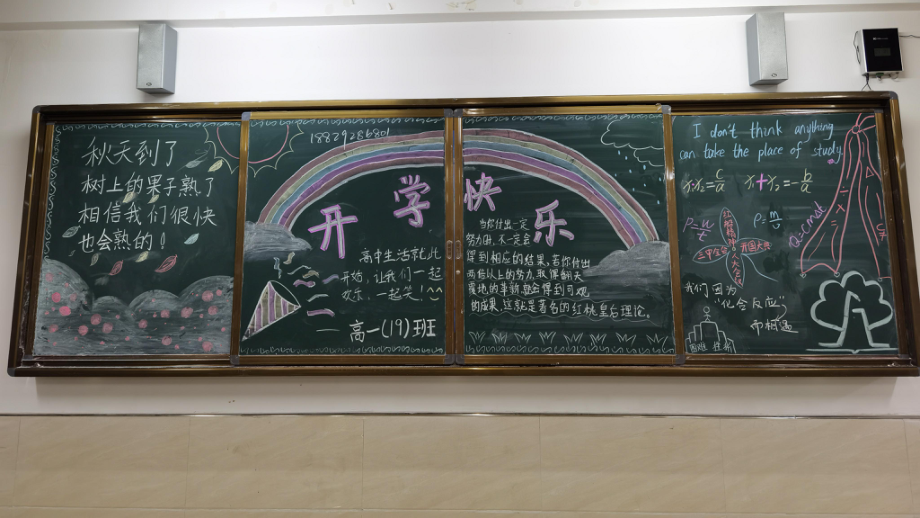 秋天到了
树上的果子熟了
相信我们很快
也会熟的！
18829286801
开学快乐
高中生活就此
开始，让我们一起
欢乐，一起笑！^^
高一(19)班
当你付出一定
努力时，不一定会
得到相应的结果，若你付出
两倍以上的努力，取得翻天
覆地的事就会得到可观
的成果，这就是著名的红桃皇后理论。
I don't think anything
can take the place of study.
x₁x₂=c/a x₁+x₂=-b/a
P=w/t
ρ=m/v
红船精神
三甲全会
开国大典
人大会
Q=cmat
我们因为
"化合反应"
而相遇
困难 挫折